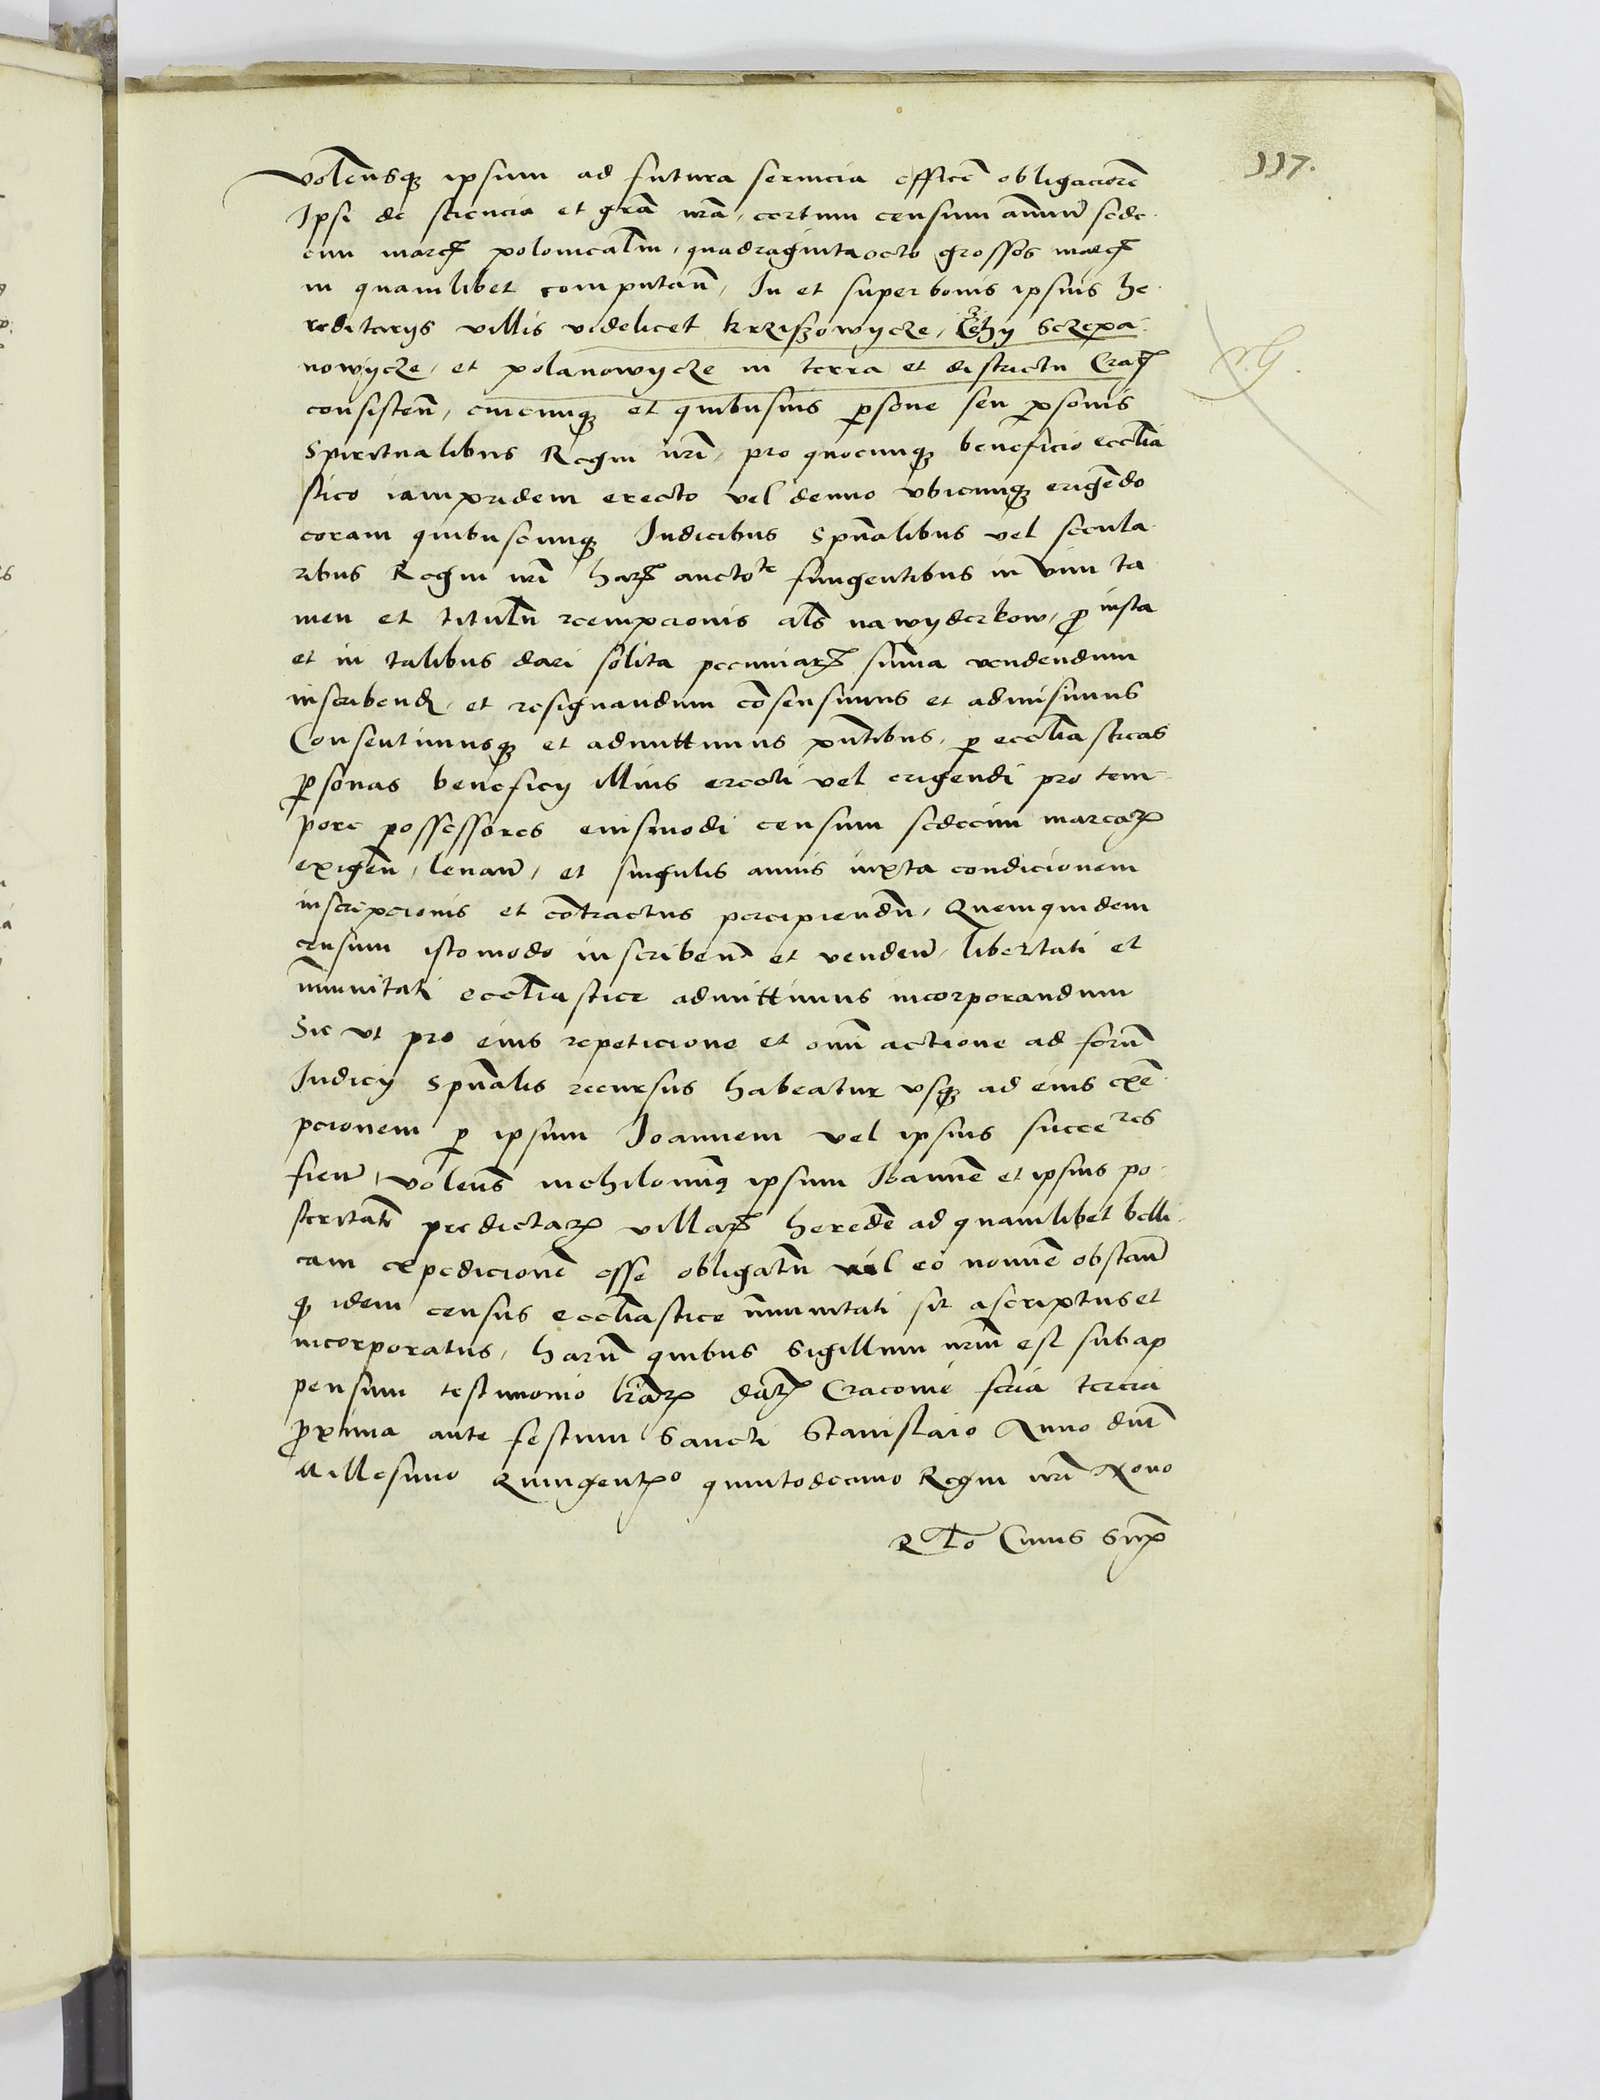 117.
volensq3 ipsum ad futura seruicia efficē obligaciorē
Ipsi de sciencia et grā nrā, certum censum annuū sede-
cim marcꝝ polonicaliū, quadragintaocto grossos marcꝝ
in quamlibet computañ, In et super bonis ipsius he-
reditarys villis videlicet krziszowycze, Sczepa-
nowycze, et polanowycze in terra et districtu Cracꝝ
consisteñ, cuicunq3 et quibusuis ꝑsone seu ꝑsonis
Spiritualibus Regni nrī, pro quocunq3 beneficio eccliā
stico iampridem erecto vel denuo vbicunq3 erigēdo
coram quibuscunq3 Iudicibus Spūalibus vel secula-
ribus Regni nrī harꝝ auctote fungentibus in vim ta-
men et titulū reempcionis als nawyderkow, ꝓ iusta
et in talibus dari solita pecuniarꝝ summa vendendum
inscribend, et resignandum cōsensimus et admisimus
Consentimusq3 et admittimus pn̄tibus, ꝑ eccliāsticas
ꝑsonas beneficy illius erecti vel erigendi pro tem-
pore possessores eiusmodi censum sedecim marcarꝝ
exigeñ, leuañ, et singulis annis iuxta condicionem
inscripcionis et cōtractus percipiendū, Quemquidem
censum istomodo inscribeñ et vendeñ, libertati et
īmunitati eccliāstice admittimus incorporandum
Sic vt pro eius repeticione et omī actione ad forū
Iudicy Spūalis recursus habeatur vsq3 ad eius exē-
pcionem ꝑ ipsum Joannem vel ipsius succeres
fieñ, volens nichilominꝰ ipsum Ioannē et ipsius po-
steritatē predictarꝝ villarꝝ heredē ad quamlibet belli-
cam expedicionē esse obligatū nil eo nomīe obstañ
ꝙ idem census eccliāstice īmunitati sit ascriptus et
incorporatus, harū quibus Sigillum nrūm est subap
pensum testimonio lrārꝝ datꝝ Cracovie feria tercia
ꝓxima ante festum Sancti Stanislai Anno dnī
Millesimo Quingentꝝo quintodecimo Regni nrī Nono
Rlō Cuius Suꝑ